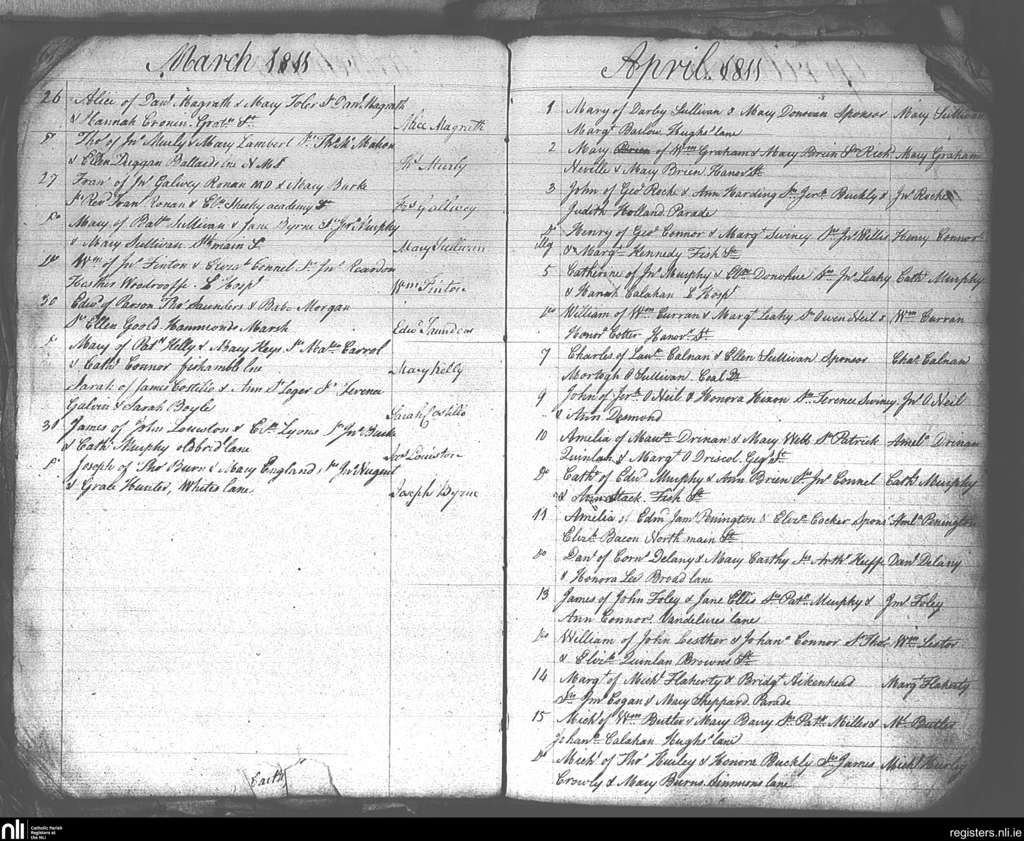 March 1811
26 Alice of Danl Magrath & Mary Toler Sr Danl Magrath
& Hannah Cronin. Grotn St
Alice Magrath
Do Thos of Jno Sheely & Mary Lambert Sr Thos Mc Mahon
& Ellen Duggan
Thos Sheely
27 Frans of Jno Galwey Ronan MD & Mary Burke
Sr Revd Fran Ronan & Elth Sheehy academy St
Frs Gallwey
Do Mary of Patk Sullivan & Jane Byrne Sr Jno Murphy
& Mary Sullivan Sth main St
Mary Sullivan
Do Wm of Jno Finton & Elizath Connel Sr Jno Reardon
Hesther Woodroffe L Hospl
Wm Finton
30 Edwd of Parson Thos Saunders & Babe Morgan
Sr Ellen Goold Hammonds Marsh
Edwd Saunders
Do Mary of Patk Kelly & Mary Keys Sr Carrol
& Cathe Connor fishamble lne
Mary Kelly
Sarah of James Costello & Ann St Leger Sr Terence
Galvin & Sarah Boyle
Sarah Costello
30 James of John Louiston & Elth Lyons Sr Jno
& Cathe Murphy oldbrid lane
Louiston
Do Joseph of Thos Burn & Mary England, Sr Jno Nugent
& Grace Hunter, Whites lane
Joseph Byrne
April. 1811
1 Mary of Darby Sullivan & Mary Donovan Sponsor Mary Sullivan
Margt Barlow Hughs lane
2 Mary Brien of Wm Graham & Mary Brien Sr Rich Mary Graham
Neville & Mary Brien Hanor St
3 John of Geo Roche & Ann Harding Sr Gerd Buckly & Jno Roche
Judith Holland Parade
Do Illg Henry of Geo Connor & Margt Swiney Sr Jno Willis Henry Connor
& Margt Kennedy Fish St
5 Catherine of Jno Murphy & Elth Donohue Sr Jno Leahy Cathe Murphy
& Hanah Calahan L Hospl
Do William of Wm Curran & Margt Leahy Sr Owen Neil & Wm Curran
Honor Cotter Hanovr St
7 Charles of Lawe Calnan & Ellen Sullivan Sponsor Chas Calnan
Mortogh O Sullivan Coal
9 John of Jerh O Neil & Honora Hixon Sr Terence Swiney Jno O Neil
& Ann Desmond
10 Amelia of Mauce Drinan & Mary Webb Sr Patrick Amela Drinan
Quinlan & Margt O Driscol. Geos St
Do Cathe of Edwd Murphy & Ann Brien Sr Jno Connel Cathe Murphy
& Ann Stack. Fish St
11 Amelia of Edm Jams Penington & Elizth Cocker Spons Amla Penington
Elizth Bacon North main St
Do Danl of Corns Delany & Mary Carthy Sr Arthr Keeffe Danl Delany
& Honora Lee Broad lane
13 James of John Foley & Jane Ellis Sr Patk Murphy & Jms Foley
Ann Connor Vandelures lane
Do William of John Lesther & Johana Connor Sr Thos Wm Lestor
& Elizth Quinlan Browns St
14 Margt of Michl Flaherty & Bridgt Aikenhead Margt Flaherty
Sr Jno Cogan & Mary Sheppard Parade
15 Michl of Wm Butler & Mary Barry Sr Patk Miller & Ml Butler
Johana Calahan Hughs lane
Do Michl of Thos Hurley & Honora Buckly Sr James Michl Hurly
Crowly & Mary Burns. Simmons lane
nli
Catholic Parish
Registers at
the NLI
registers.nli.ie